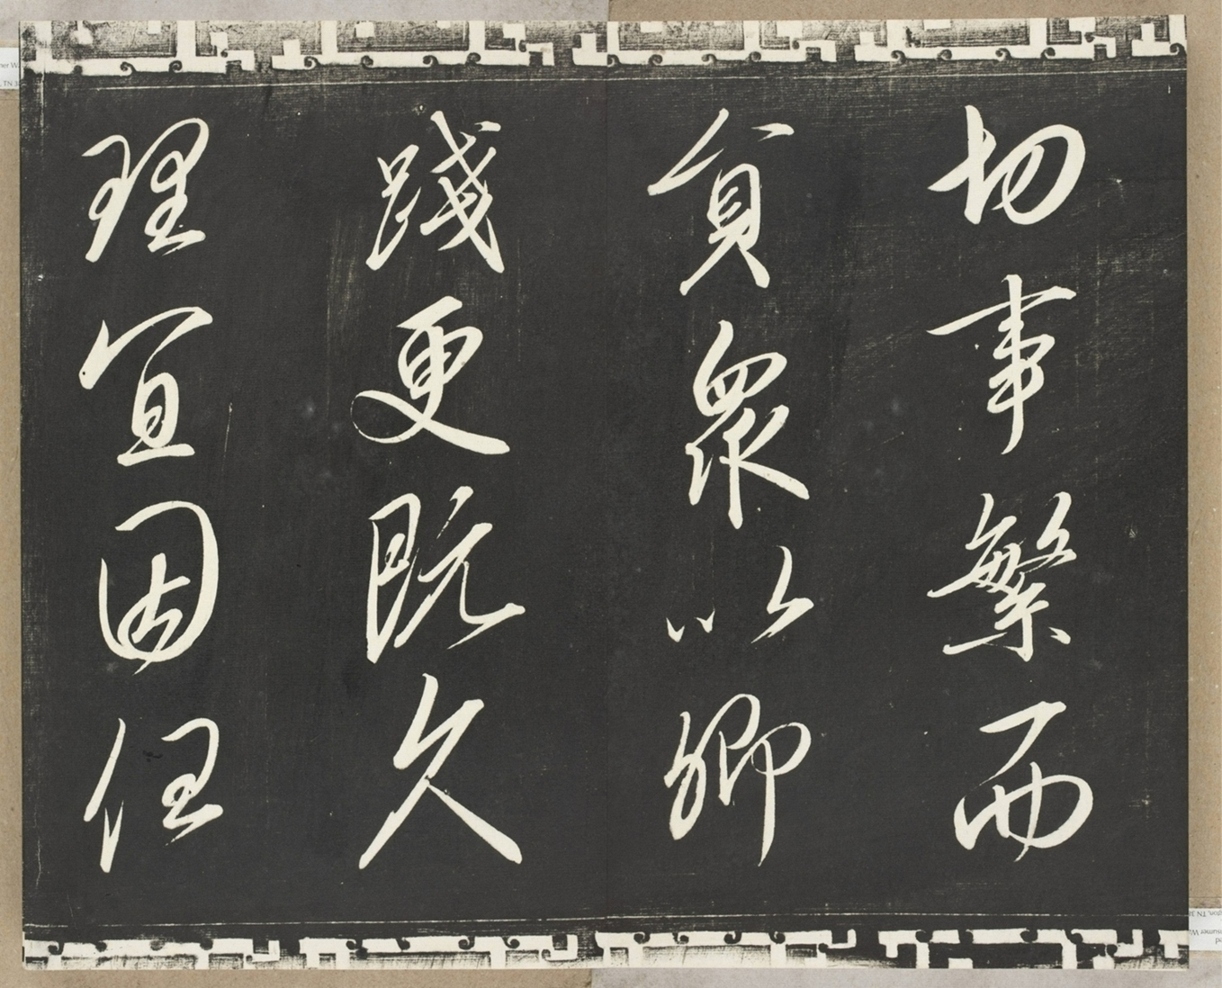 切事繁而
貟衆以卿
踐更既久
理宜因任